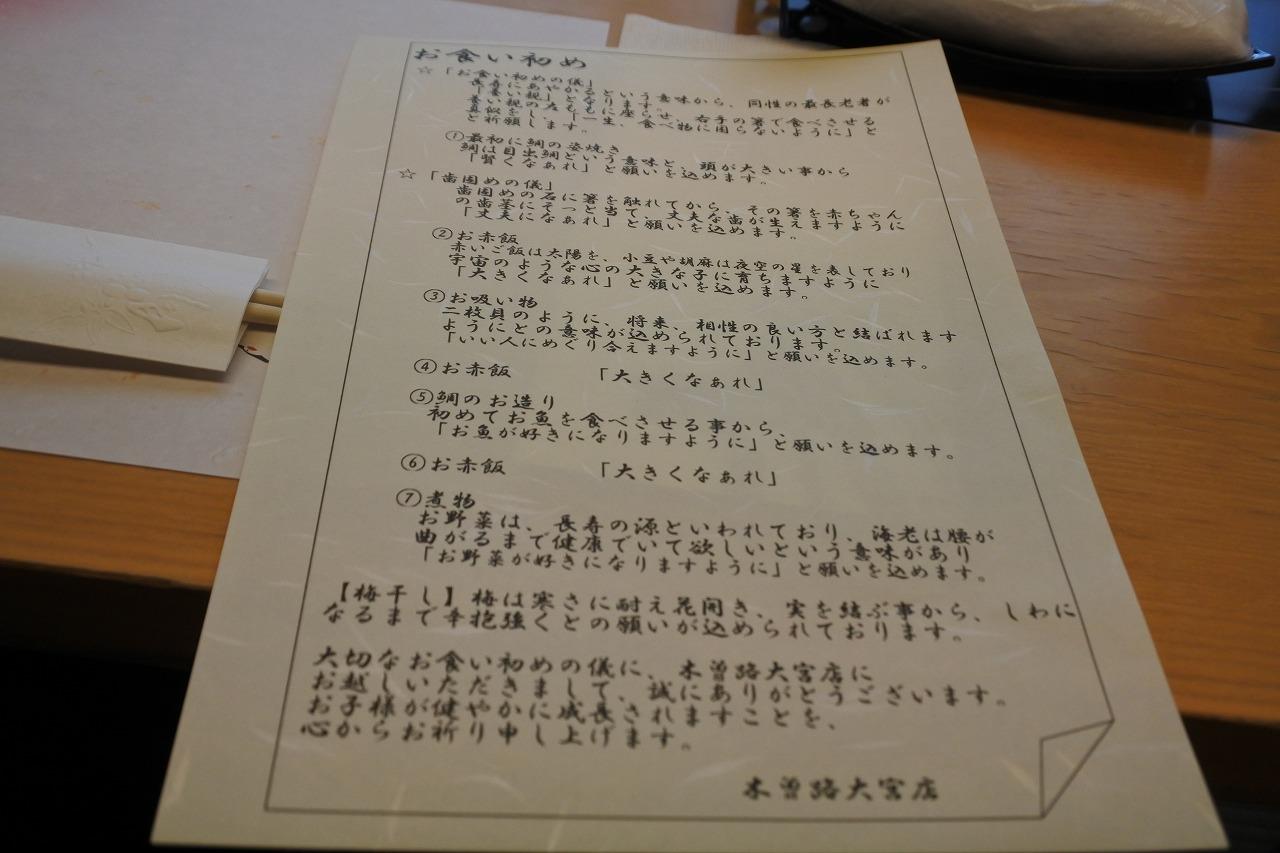 お食い初め
☆「お食い初めの儀」
長寿にあやかるという意味から、同性の最長老者が
「養い親」となります。
養い親の左ももに座らせ、右手の箸で食べさせる
真似をし、「一生、食べ物に困らないように」と
と祈願します。
①最初に鯛の姿焼き
鯛は目出鯛という意味と、頭が大きい事から
「賢くなぁれ」と願いを込めます。
☆「歯固めの儀」
歯固めの石に箸を触れてから、その箸を赤ちゃん
の歯茎にそっと当て、丈夫な歯が生えますように
「丈夫になぁれ」と願いを込めます。
②お赤飯
赤いご飯は太陽を、小豆や胡麻は夜空の星を表しており
宇宙のような心の大きな子に育ちますように
「大きくなぁれ」と願いを込めます。
③お吸い物
二枚貝のように、将来、相性の良い方と結ばれます
ようにとの意味が込められております。
「いい人にめぐり合えますように」と願いを込めます。
④お赤飯 「大きくなぁれ」
⑤鯛のお造り
初めてお魚を食べさせる事から、
「お魚が好きになりますように」と願いを込めます。
⑥お赤飯 「大きくなぁれ」
⑦煮物
お野菜は、長寿の源といわれており、海老は腰が
曲がるまで健康でいて欲しいという意味があり
「お野菜が好きになりますように」と願いを込めます。
【梅干し】梅は寒さに耐え花開き、実を結ぶ事から、しわに
なるまで辛抱強くとの願いが込められております。
大切なお食い初めの儀に、木曽路大宮店に
お越しいただきまして、誠にありがとうございます。
お子様が健やかに成長されますことを、
心からお祈り申し上げます。
木曽路大宮店